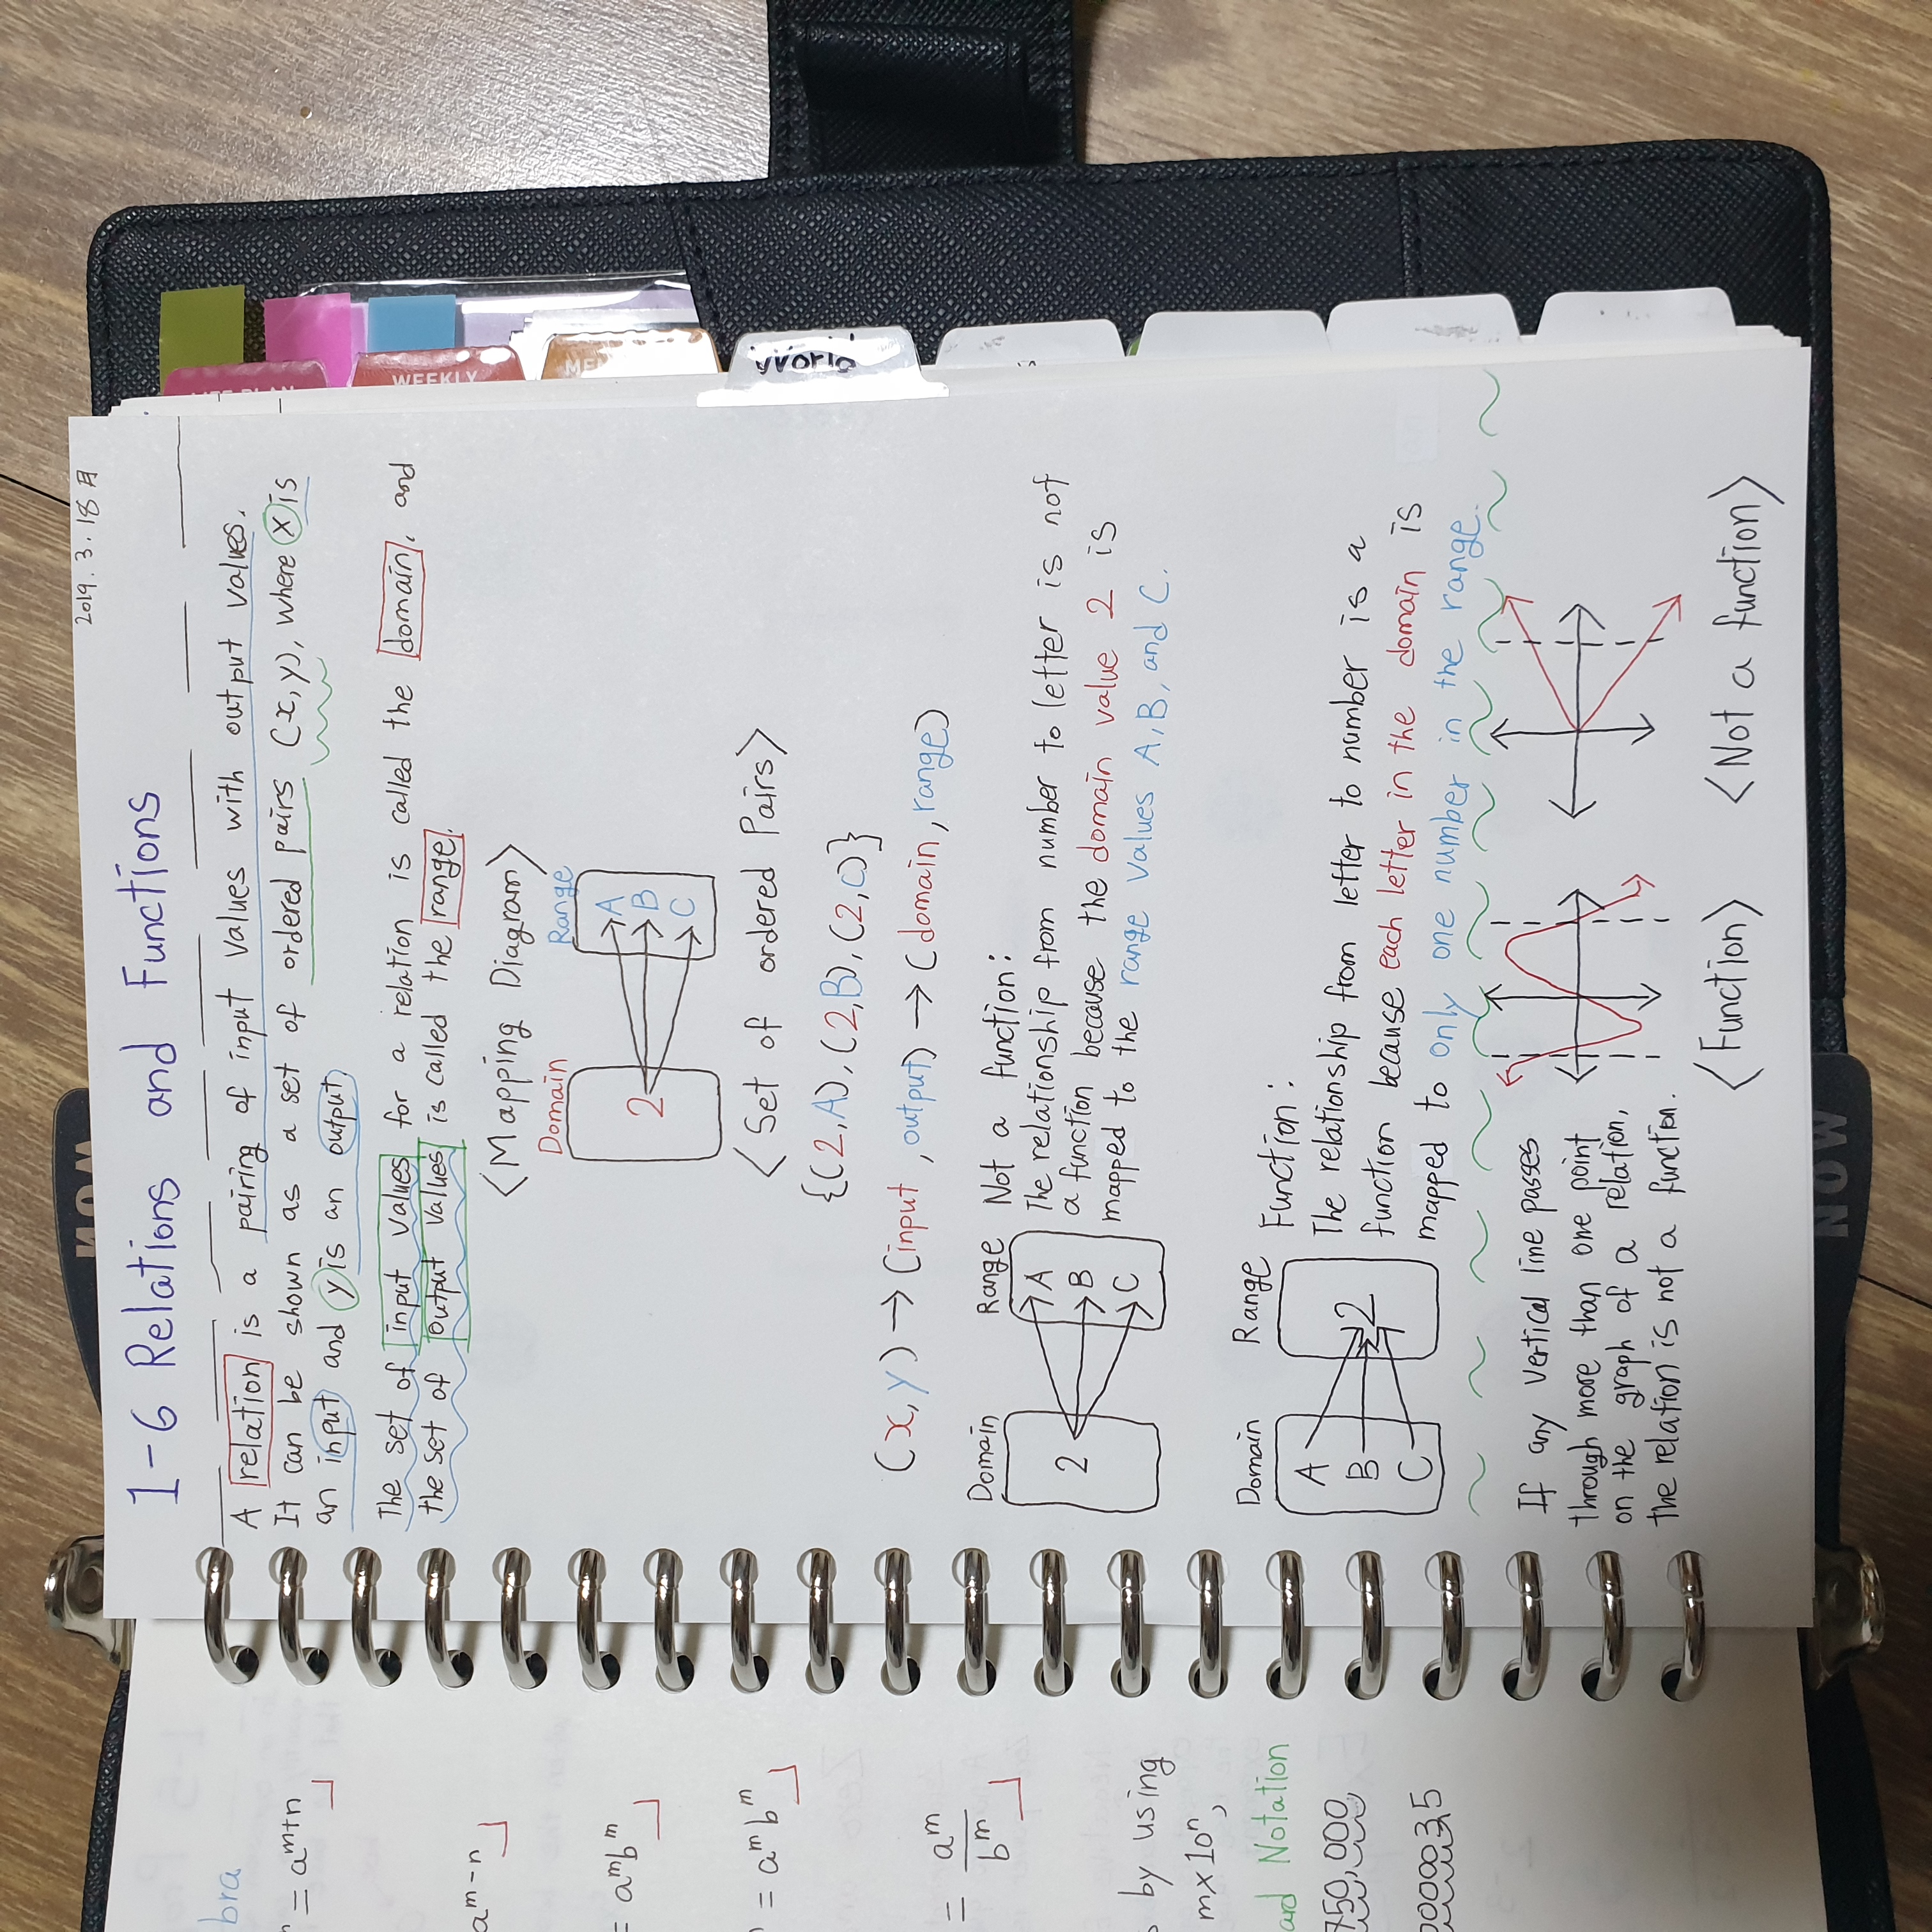 2019. 3. 18 月
1-6 Relations and Functions
A relation is a pairing of input values with output values.
It can be shown as a set of ordered pairs (x,y), where x is
an input and y is an output
The set of input values for a relation is called the domain, and
the set of output values is called the range.
<Mapping Diagram>
Domain Range
2 A
B
C
<Set of ordered Pairs>
{(2,A),(2,B),(2,C)}
(x,y) → (input, output) → (domain, range)
Domain Range
2 A
B
C
Not a function:
The relationship from number to letter is not
a function because the domain value 2 is
mapped to the range values A, B, and C.
Domain Range
A
B 2
C
Function:
The relationship from letter to number is a
function because each letter in the domain is
mapped to only one number in the range.
If any vertical line passes
through more than one point
on the graph of a relation,
the relation is not a function.
<Function> <Not a function>
bra
= aᵐ⁺ⁿ
aᵐ⁻ⁿ
= aᵐbᵐ
= aᵐbᵐ
= aᵐ/bᵐ
by using
m×10ⁿ,
ard Notation
750,000
WEEKLY
World
NOW
NOW